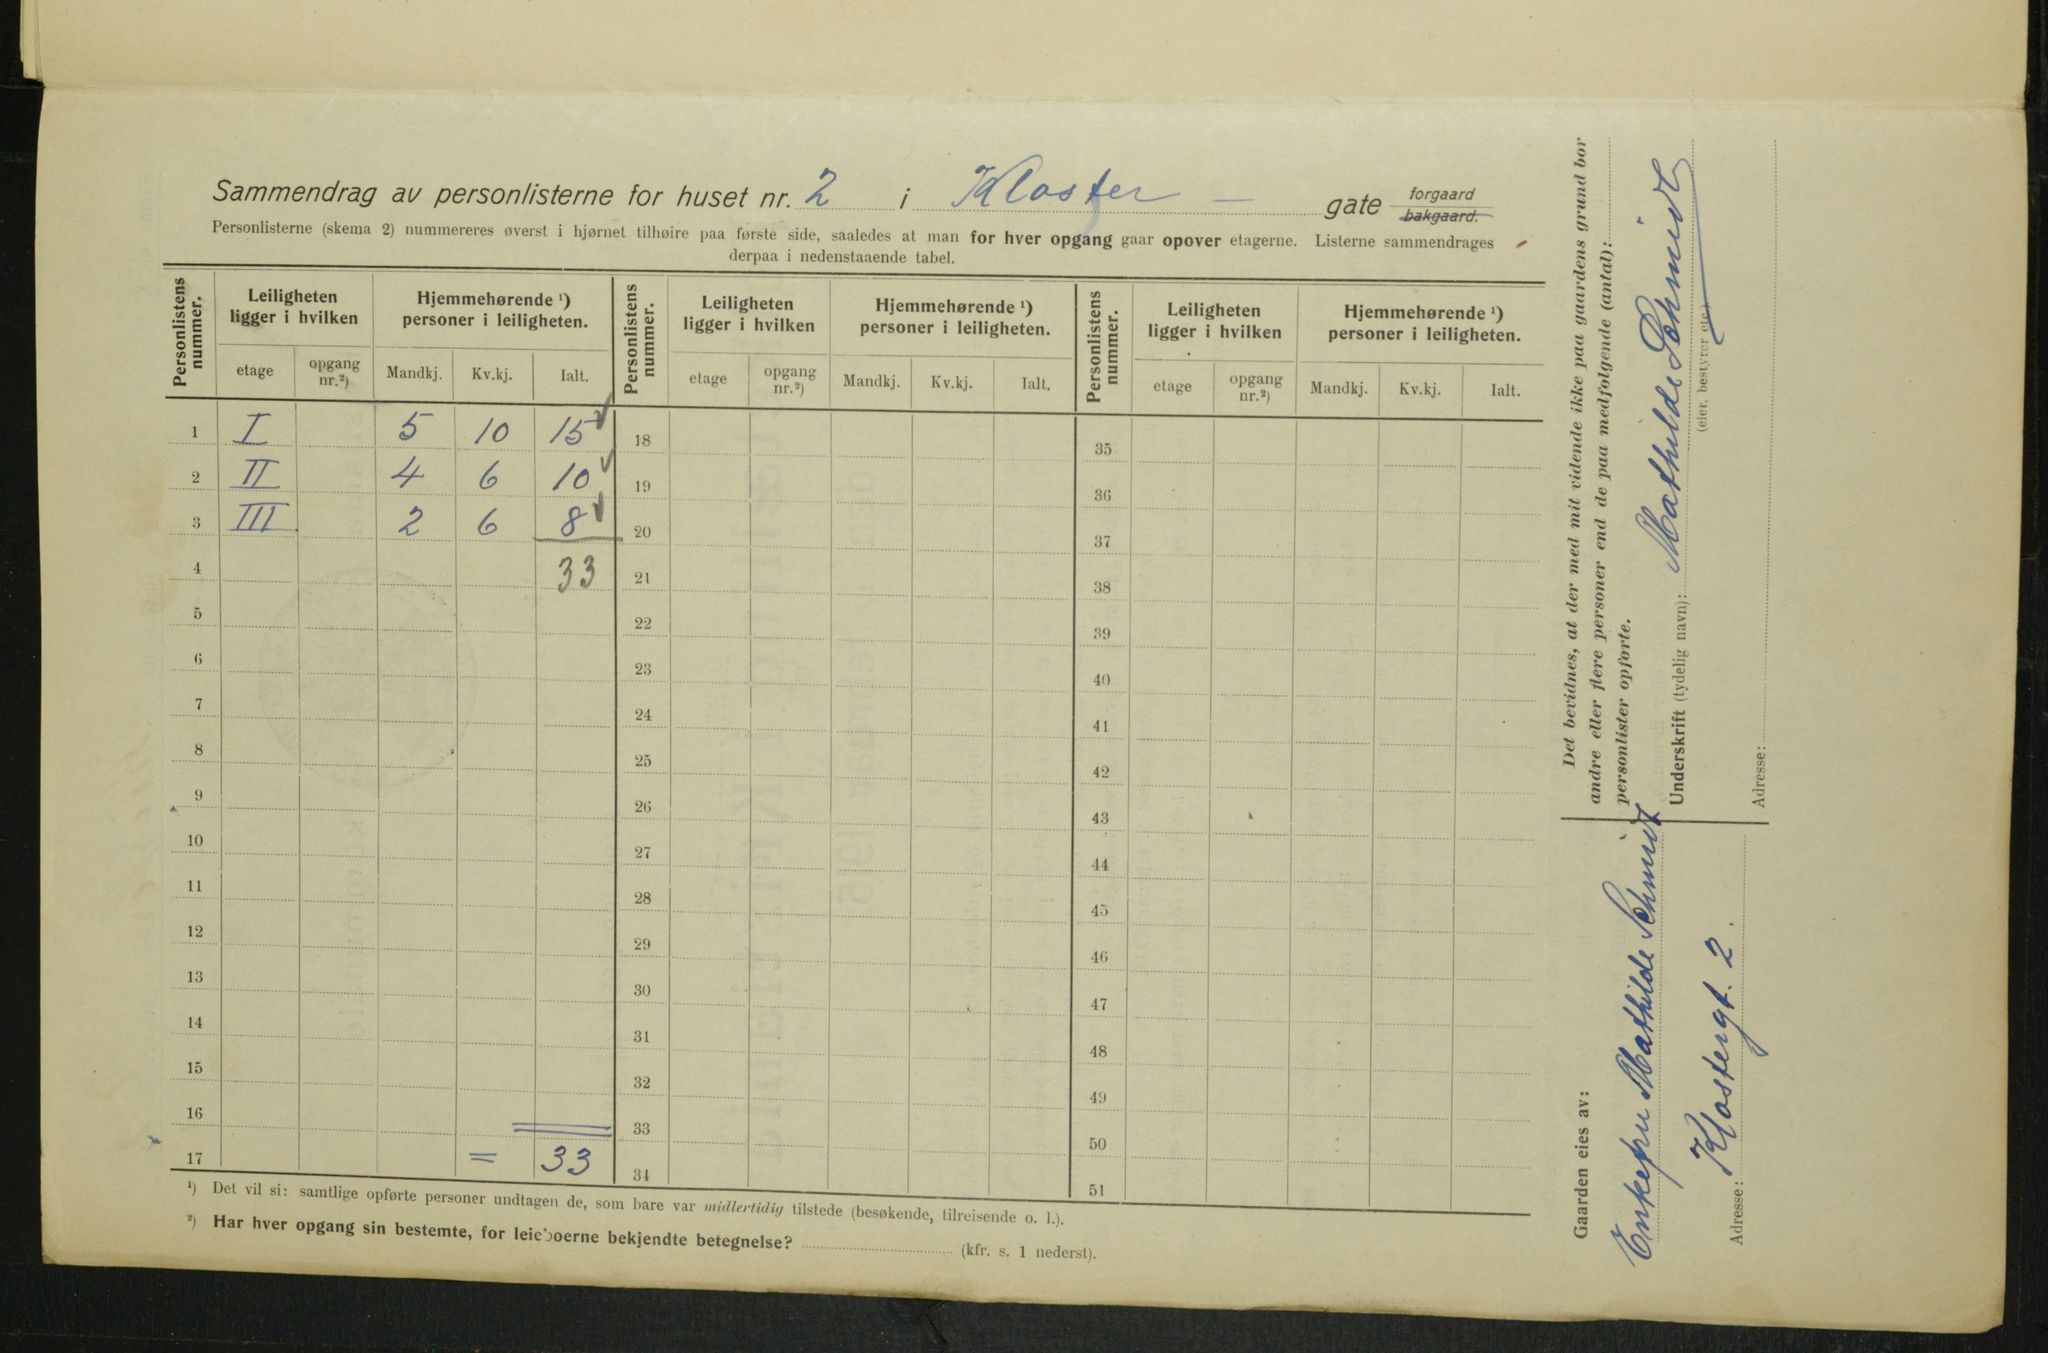 Sammendrag av personlisterne for huset nr. 2 i Kloster – gate forgaard
bakgaard.
Personlisterne (skema 2) nummereres øverst i hjørnet tilhøire paa første side, saaledes at man for hver opgang gaar opover etagerne. Listerne sammendrages
derpaa i nedenstaaende tabel.
Personlistens nummer. Leiligheten ligger i hvilken Hjemmehørende ¹) personer i leiligheten. Personlistens nummer. Leiligheten ligger i hvilken Hjemmehørende ¹) personer i leiligheten. Personlistens nummer. Leiligheten ligger i hvilken Hjemmehørende ¹) personer i leiligheten.
etage opgang nr.²) Mandkj. Kv.kj. Ialt. etage opgang nr.²) Mandkj. Kv.kj. Ialt. etage opgang nr.²) Mandkj. Kv.kj. Ialt.
1 I 5 10 15 18 35
2 II 4 6 10 19 36
3 III 2 6 8 20 37
4 33 21 38
5 22 39
6 23 40
7 24 41
8 25 42
9 26 43
10 27 44
11 28 45
12 29 46
13 30 47
14 31 48
15 32 49
16 33 50
17 = 33 34 51
¹) Det vil si: samtlige opførte personer undtagen de, som bare var midlertidig tilstede (besøkende, tilreisende o. l.).
²) Har hver opgang sin bestemte, for leieboerne bekjendte betegnelse? (kfr. s. 1 nederst).
Det bevidnes, at der med mit vidende ikke paa gaardens grund bor
andre eller flere personer end de paa medfølgende (antal):
personlister opførte.
Underskrift (tydelig navn): Mathilde Schmidt
(eier, bestyrer etc.)
Adresse:
Gaarden eies av:
Enkefru Mathilde Schmidt
Klostergt. 2.
Adresse: